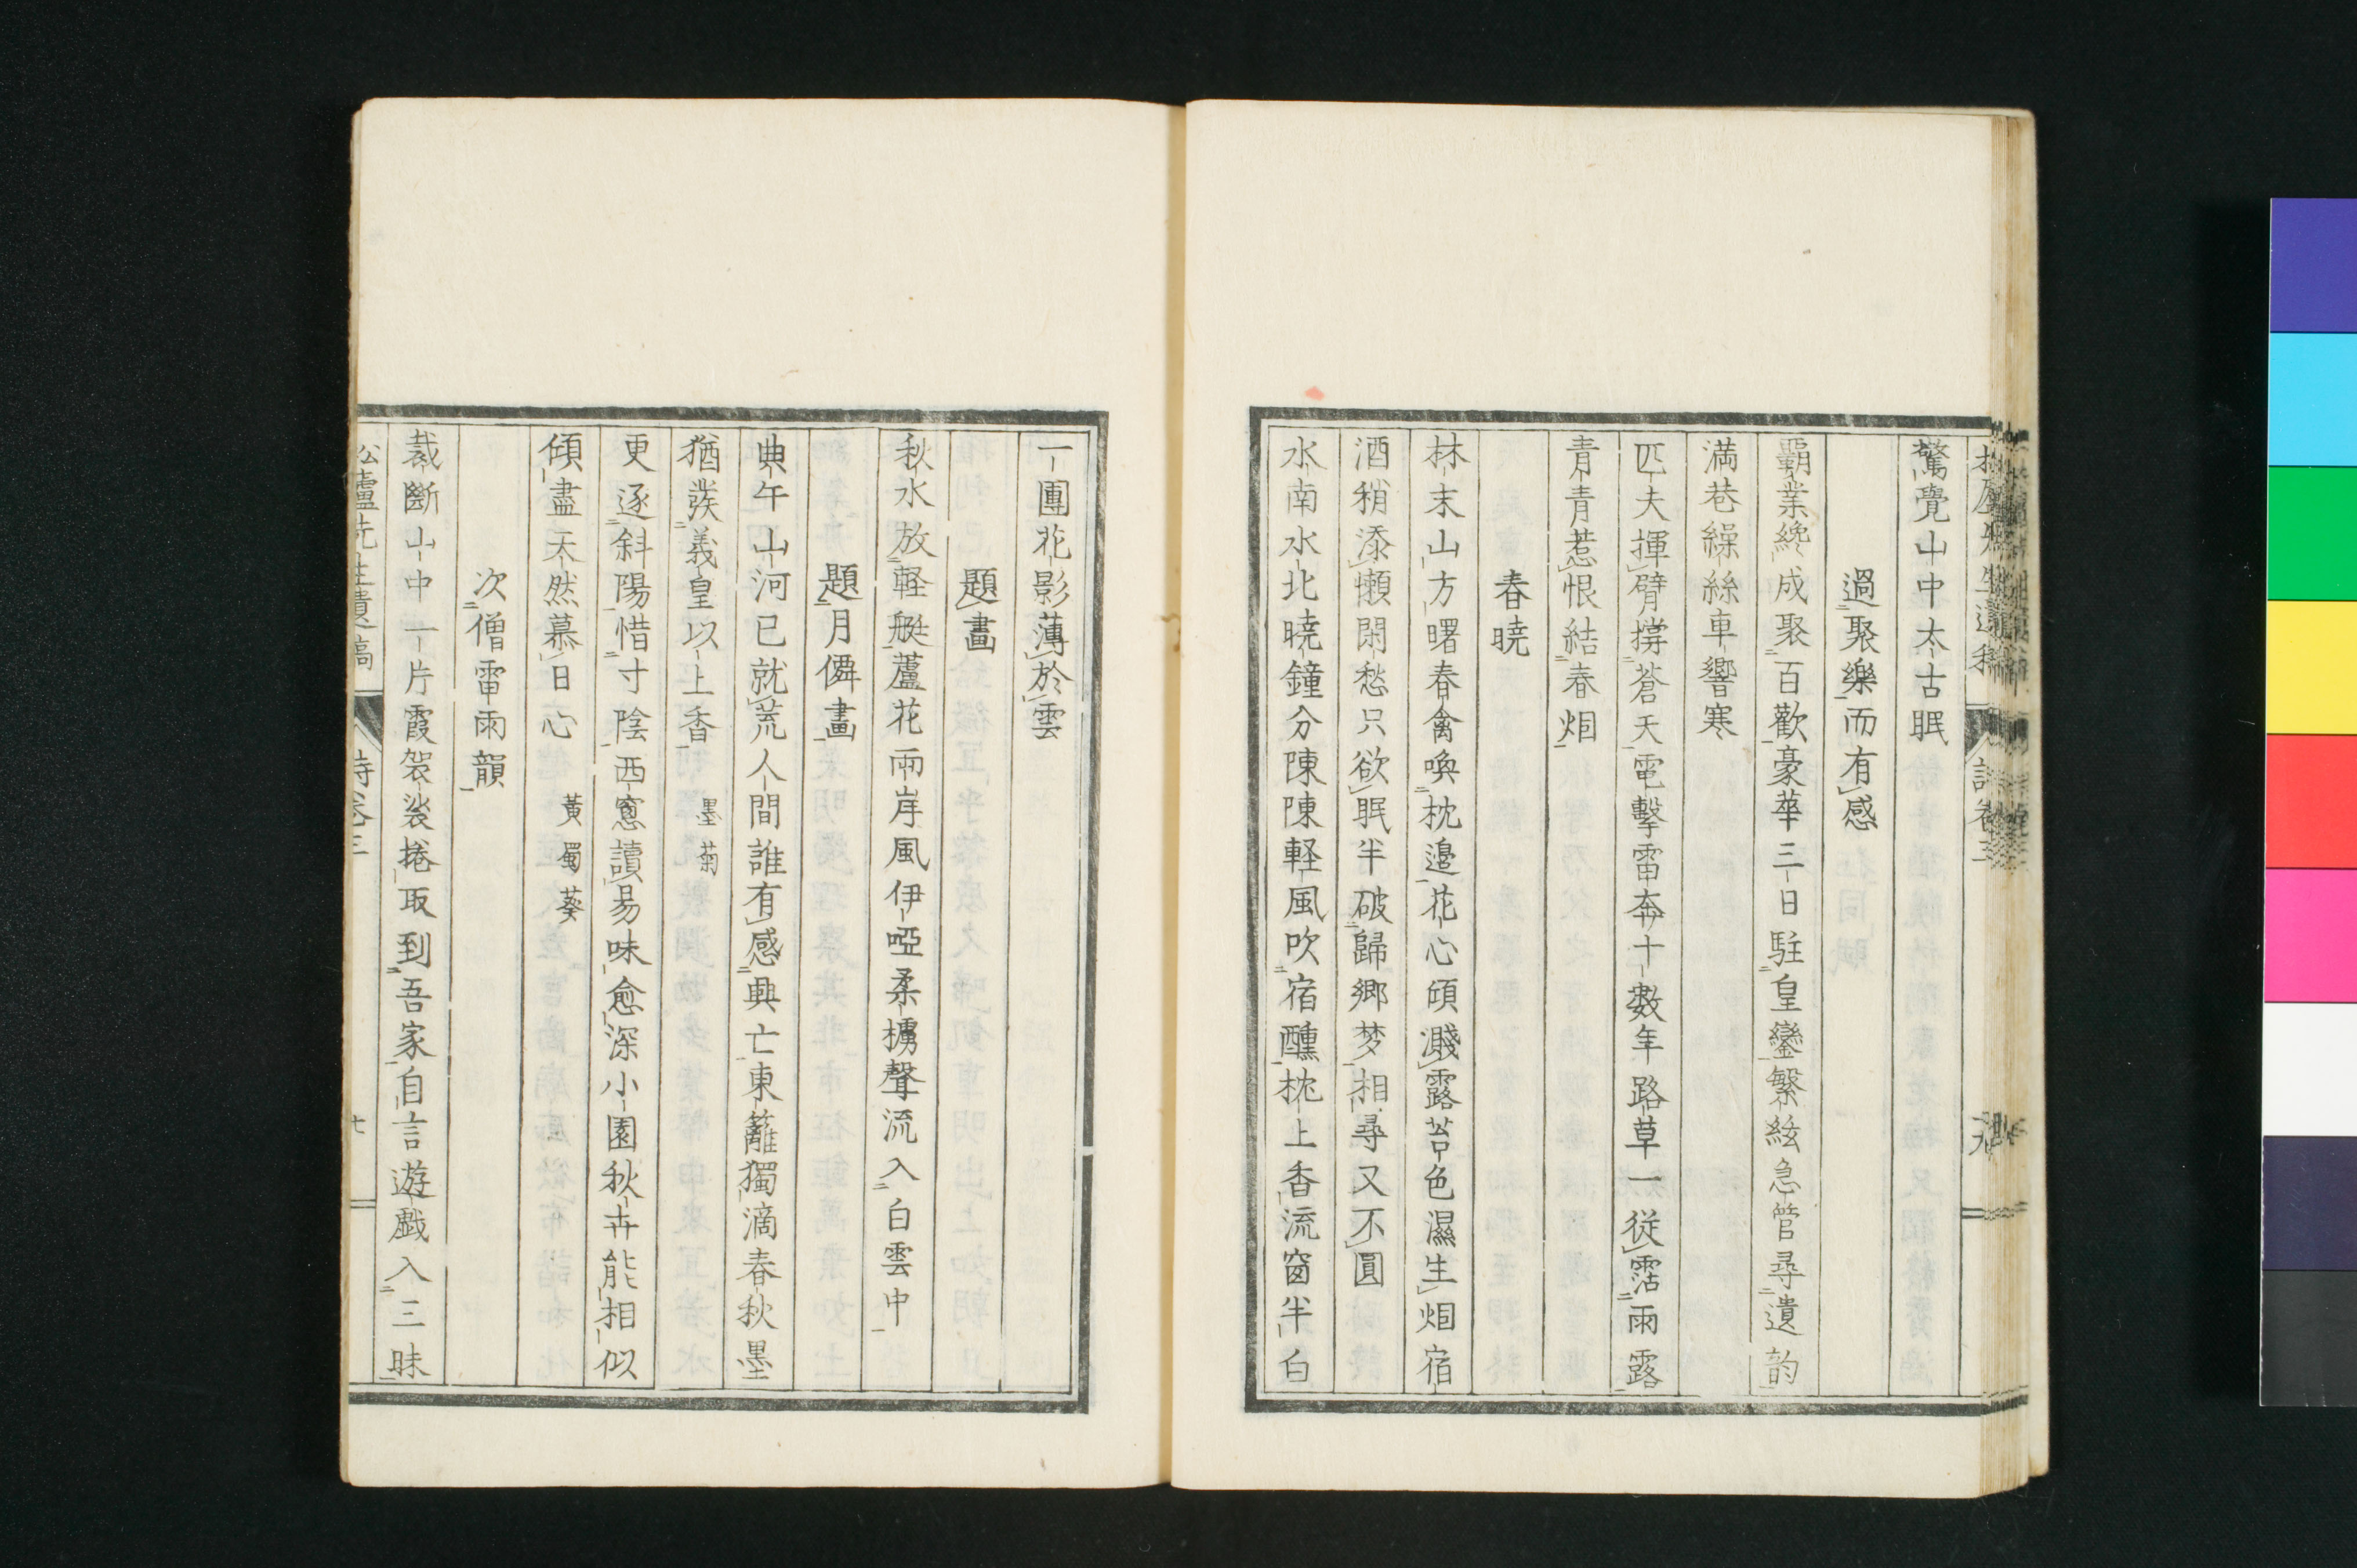 驚覺山中太古眠
過聚樂而有感
霸業纔成聚百歡豪華三日駐皇鑾繁絃急管尋遺韵
滿巷繰絲車響寒
匹夫揮臂撐蒼天電擊雷奔十數年路草一從霑雨露
青青惹恨結春烟
春曉
林末山方曙春禽喚枕邊花心頎濺露苔色濕生烟宿
酒稍添懶閑愁只欲眠半破歸鄉梦相尋又不圓
水南水北曉鐘分陳陳軽風吹宿醺枕上香流窗半白
一團花影薄於雲
題畫
秋水放軽艇蘆花兩岸風伊啞柔擄聲流入白雲中
題月僲畫
典午山河已就荒人間誰有感興亡東籬獨滴春秋墨
猶發羲皇以上香 墨菊
更逐斜陽惜寸陰西窻讀易味愈深小園秋卉能相似
傾盡天然慕日心 黃蜀葵
次僧雷雨韻
裁斷山中一片霞袈裟捲取到吾家自言遊戯入三昧
松廬先生遺稿 詩卷三